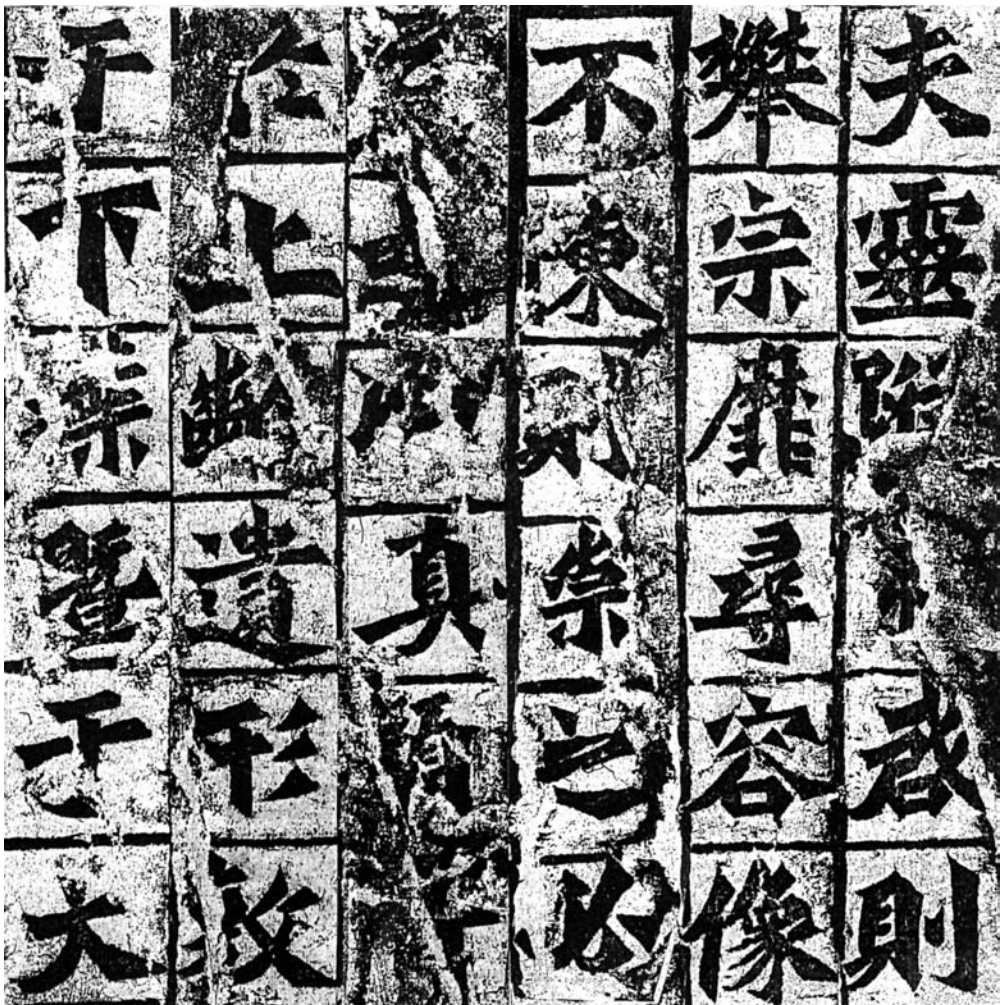 夫靈蹤啓則
攀宗靡尋容像
不陳則崇之必
以真顏
於上齡遺形敷
于下葉暨于大